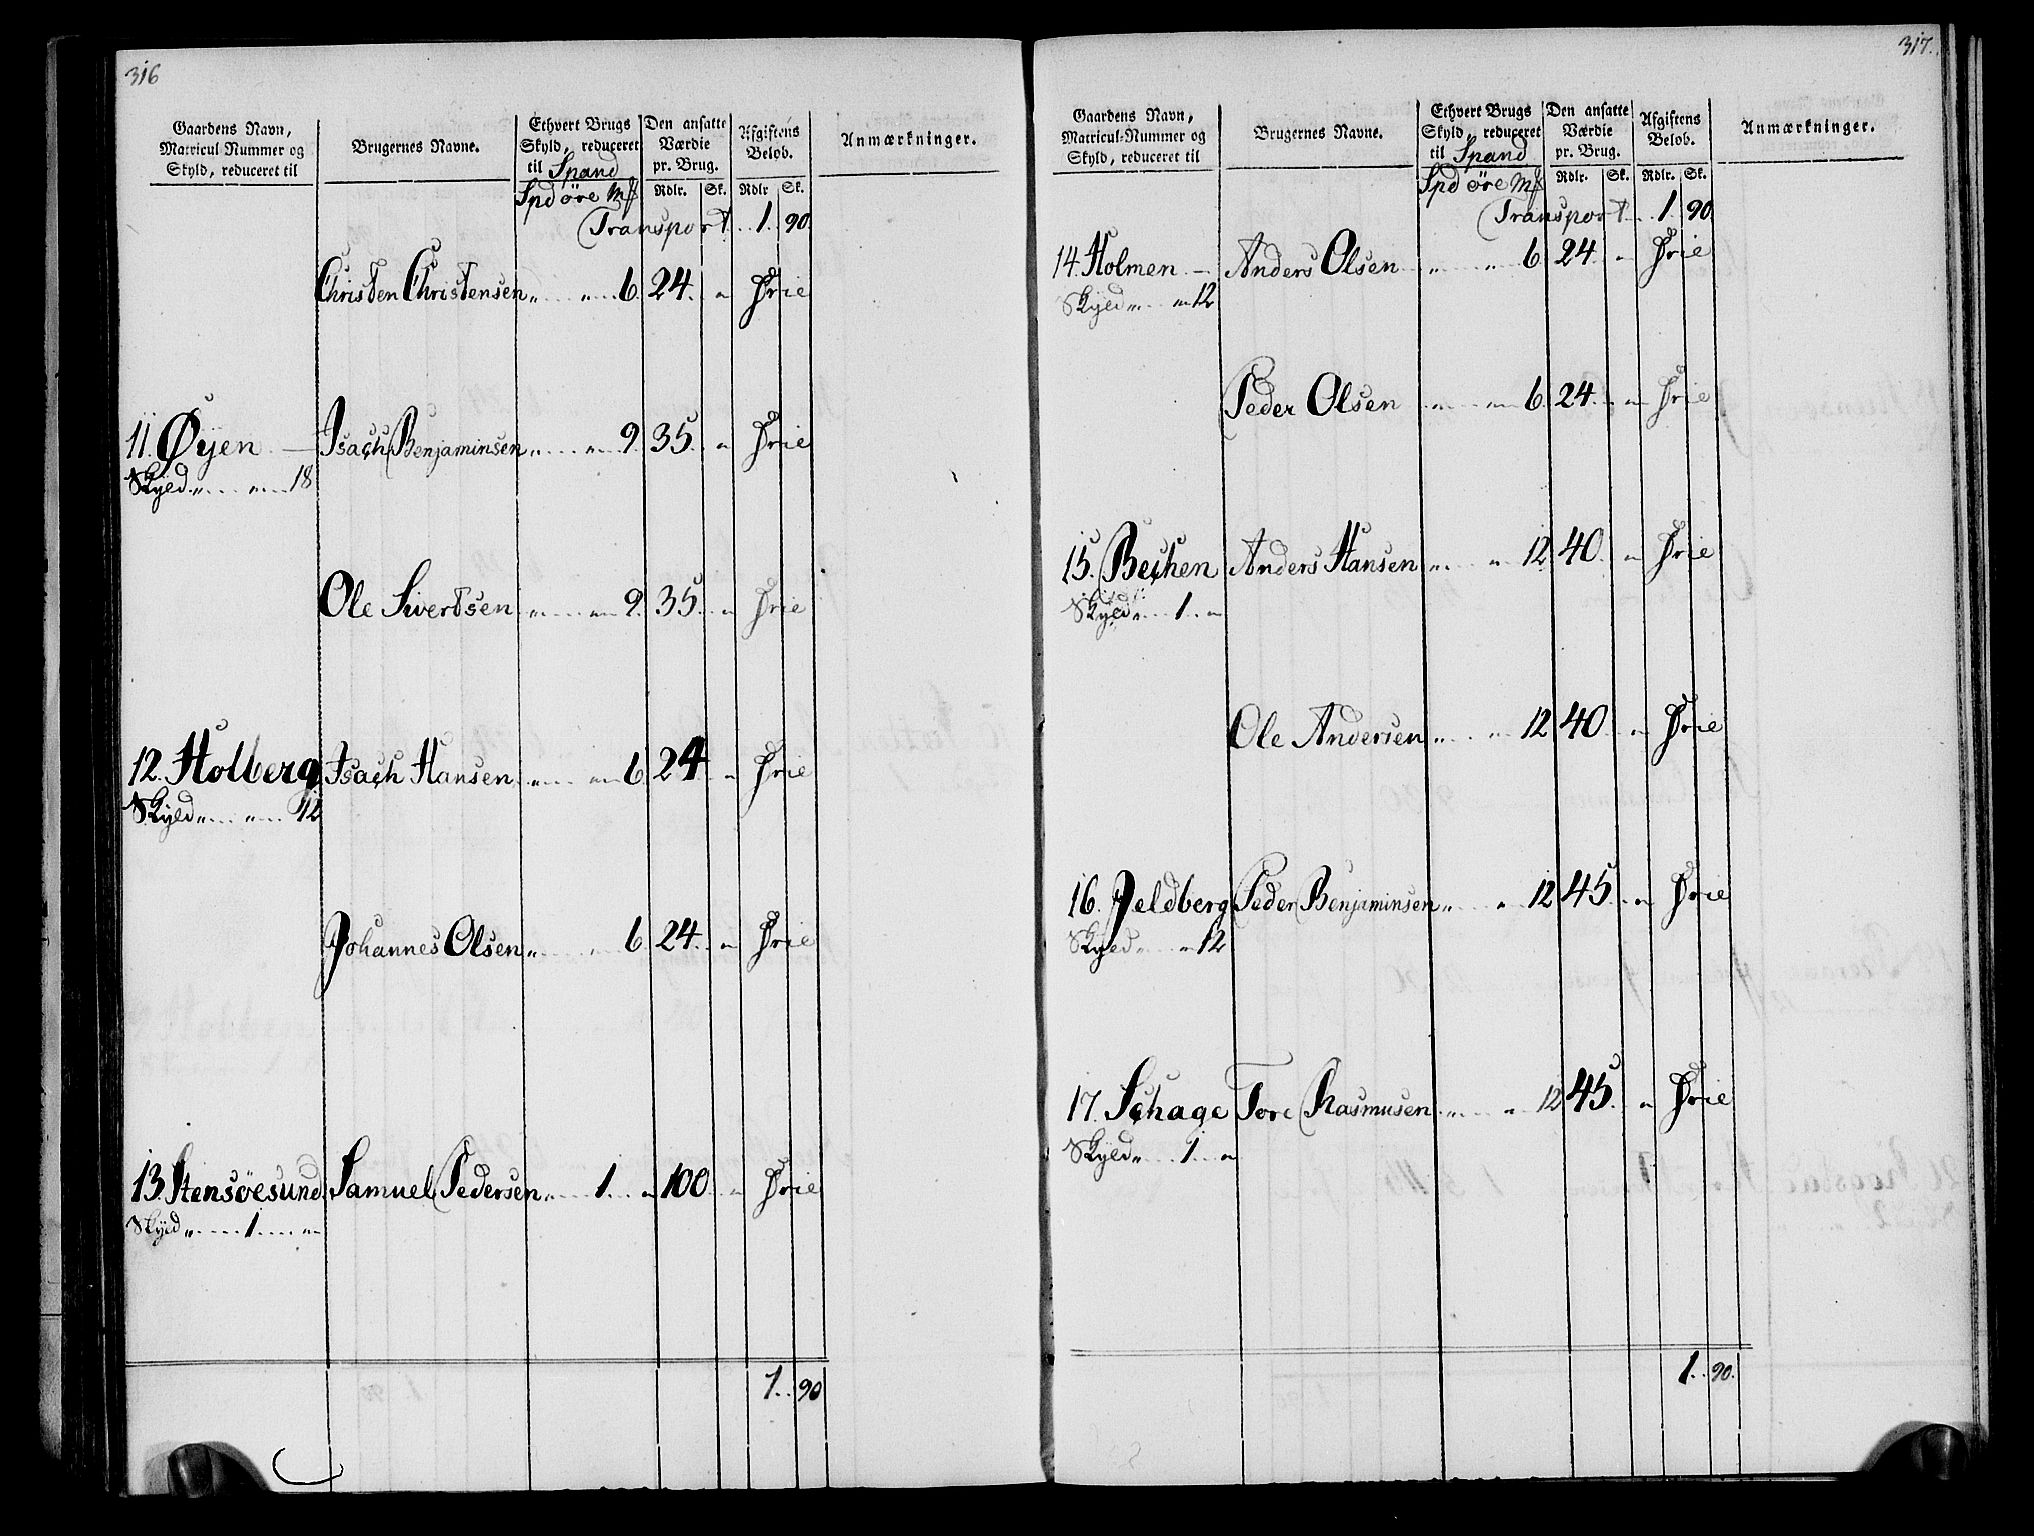 316
Gaardens Navn, Matricul-Nummer og Skyld, reduceret til | Brugernes Navne. | Ethvert Brugs Skyld, reduceret til Spand | Den ansatte Værdie pr. Brug. | Afgiftens Beløb. | Anmærkninger.
Spd öre Mk | Rdlr. | Sk. | Rdlr | Sk.
Transport . . 1. 90.
Christen Christensen „ „ 6. 24. „ frie
11. Øyen — Isach Benjaminsen „ „ 9. 35. „ frie
Skyld „ „ 18
Ole Sivertsen „ „ 9. 35. „ frie
12. Holberg Isach Hansen „ „ 6. 24. „ frie
Skyld „ „ 12
Johannes Olsen „ „ 6. 24. „ frie
13. Stensöesund Samuel Pedersen „ 1. „ 100 „ frie
Skyld „ 1. „
1. 90
317.
Gaardens Navn, Matricul-Nummer og Skyld, reduceret til | Brugernes Navne. | Ethvert Brugs Skyld, reduceret til Spand | Den ansatte Værdie pr. Brug. | Afgiftens Beløb. | Anmærkninger.
Spd öre Mk | Rdlr. | Sk. | Rdlr. | Sk.
Transport . . 1. 90.
14. Holmen — Anders Olsen „ „ 6. 24. „ frie
Skyld „ „ 12
Peder Olsen „ „ 6. 24. „ frie
15. Bechen Anders Hansen „ „ 12 40. „ frie
Skyld „ 1. „
Ole Andersen „ „ 12 40. „ frie
16. Jeldberg Peder Benjaminsen „ „ 12 45. „ frie
Skyld „ „ 12
17. Schage Tore Rasmusen „ „ 12 45. „ frie
Skyld „ 1. „
1. 90.